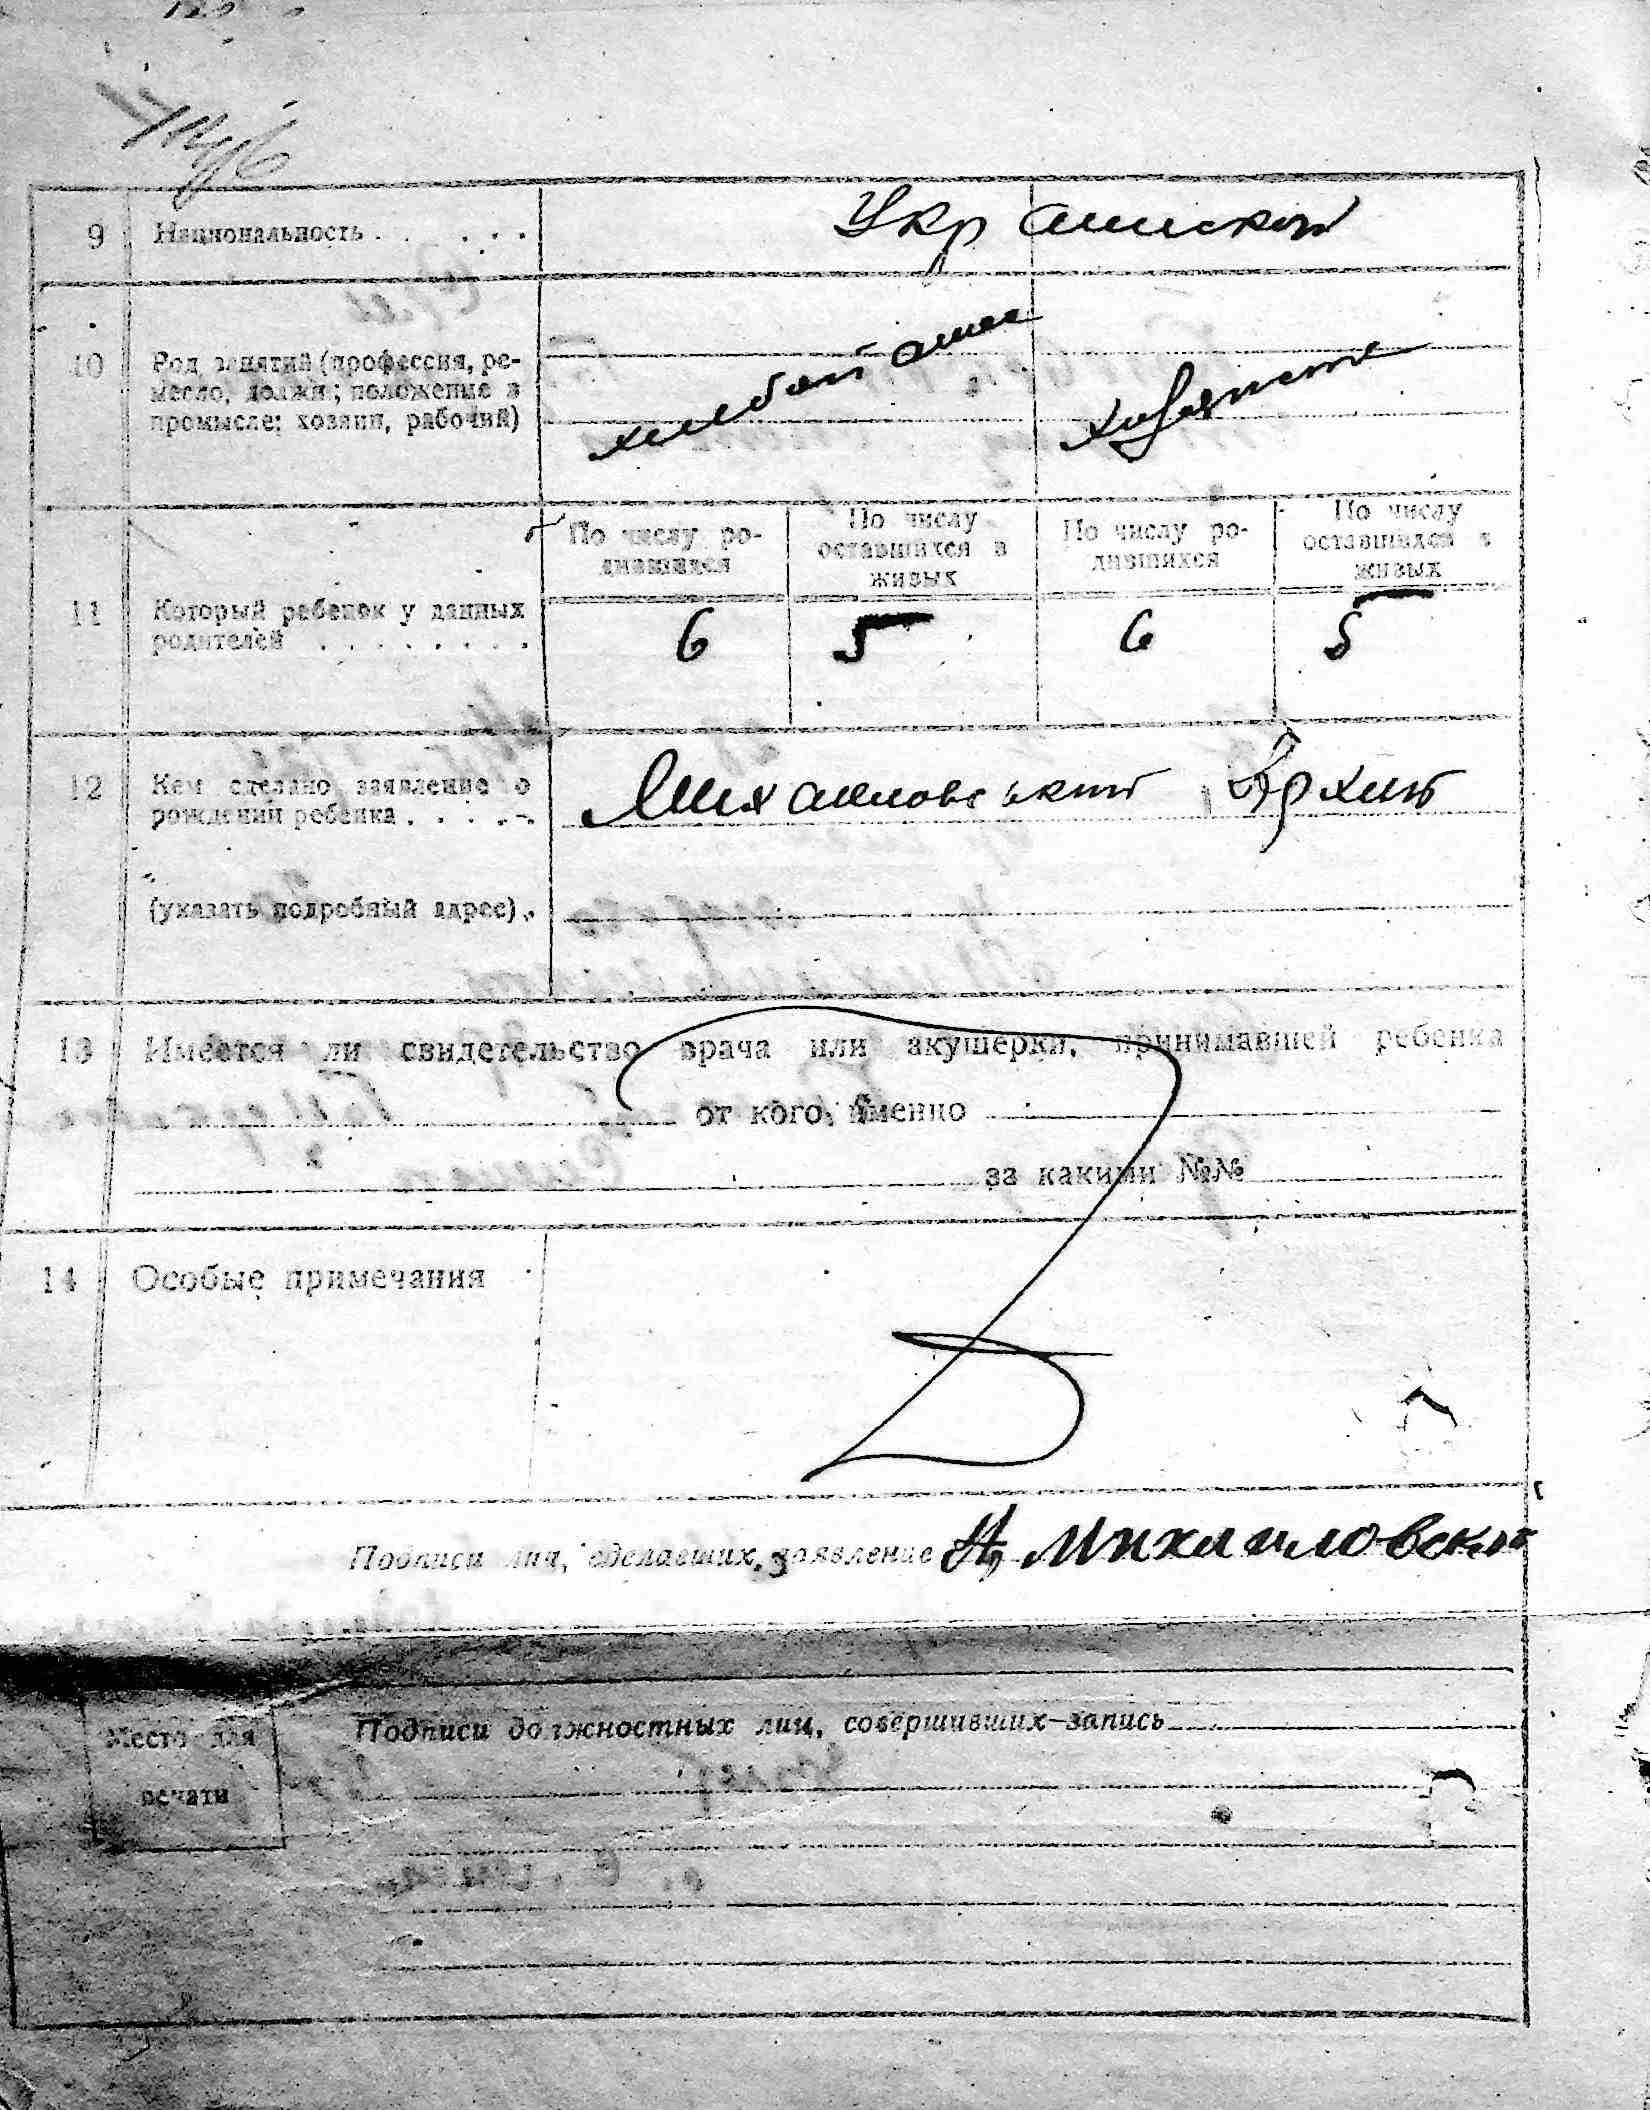 9 Национальность . . . . .
10 Род занятий (профессия, ре-
месло, должн; положение в
промысле: хозяин, рабочий)
11 Который ребенок у данных
родителей . . . . . . . .
По числу ро-
дившихся
По числу
оставшихся в
живых
По числу ро-
дившихся
По числу
оставшихся в
живых
6 5 6 5
12 Кем сделано заявление о
рождении ребенка . . . . .
Михайловський
(указать подробный адрес) .
13 Имеется ли свидетельство врача или акушерки, принимавшей ребенка
от кого, именно
за какими №№
14 Особые примечания
Подписи лиц, сделавших заявление А. Михаиловский
Подписи должностных лиц, совершивших запись
Место для
печати